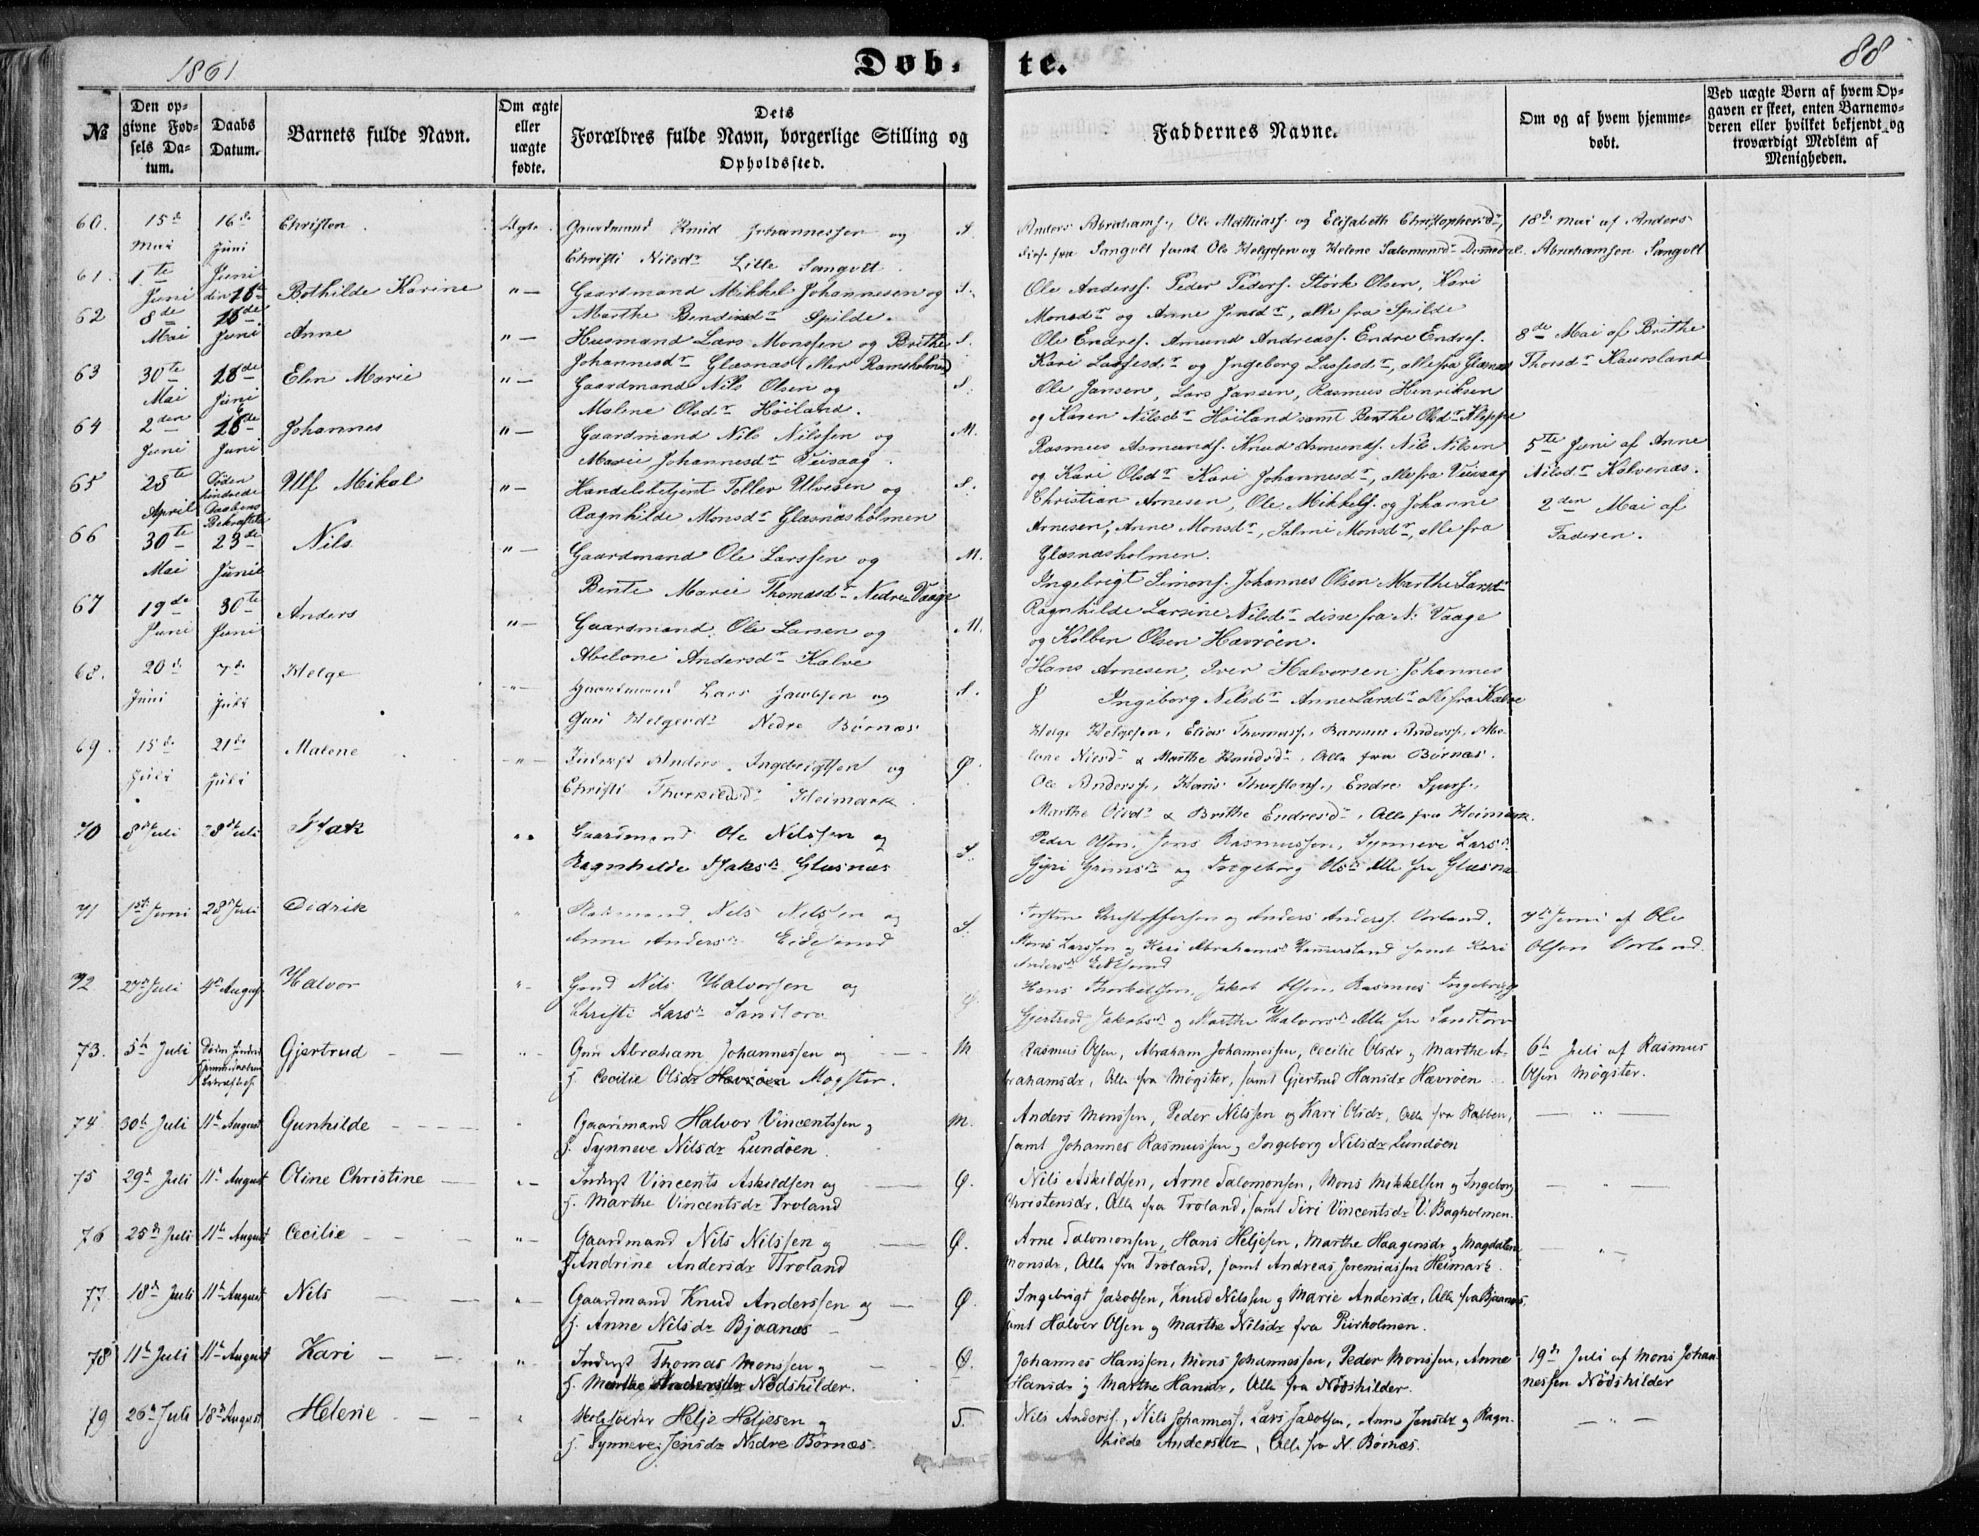 1861
Døb-
te.
88
№
Den opgivne Fødsels Datum.
Daabs Datum.
Barnets fulde Navn.
Om ægte eller uægte fødte.
Dets Forældres fulde Navn, borgerlige Stilling og Opholdssted.
Faddernes Navne.
Om og af hvem hjemmedøbt.
Ved uægte Børn af hvem Opgaven er skeet, enten Barnemoderen eller hvilket bekjendt og troværdigt Medlem af Menigheden.
60. 15de Mai 16de Juni Christen Ægte Gaardmand Knud Johannessen og S.
Christi Nilsdr Lille Sangolt.
Anders Abrahams., Ole Mathiass. og Elisabeth Christophersdr,
fra Sangolt samt Ole Helgesen og Helene Salomonsdr
18de Mai af Anders
Abrahamsen Sangolt
61. 1te Juni Juni den 16de Bothilde Karine "— Gaardmand Mikkel Johannesen og S.
Marthe Bendixdr Spilde.
Ole Anderss. Peder Peders. Størk Olsen, Kari
Monsdr og Anne Jensdr, alle fra Spilde
62 8de Mai 16de Juni Anne "— Husmand Lars Monssen og Brithe S.
Johannesdr Glæsnæs eller Ramsholmen
Ole Endres. Amund Andreass. Endre Endres.
Kari Lassesdr og Ingeborg Lassesdr, alle fra Glæsnæs
8de Mai af Brithe
Thorsdr Kaursland
63 30te Mai 16de Juni Elen Marie "— Gaardmand Nils Olsen og S.
Malene Olsdr Høiland.
Ole Jansen, Lars Jansen, Rasmus Henriksen
og Karen Nilsdr Høiland samt Berthe Olsdr Kleppe
64 2den Juni 16de Juni Johannes "— Gaardmand Nils Nilssen og M.
Marie Johannesdr Veisaag.
Rasmus Asmunds. Knud Asmunds. Nils Nilsen
og Kari Olsdr Kari Johannesdr, alle fra Veisaag
5te Juni af Anne
Nilsdr Kalvenæs.
65 25te April Døden hindrede Daabens Bekræftelse Ulf Mikal "— Handelsbetjent Toller Ulvesen og S.
Ragnhilde Monsdr Glæsnæsholmen
Christian Arnesen, Ole Mikkels. og Johanne
Arnesen, Anne Monsdr, Salmi Monsdr, alle fra
Glæsnæsholmen.
2den Mai af
Faderen.
66 30te Mai 23de Junii Nils "— Gaardmand Ole Larssen og M.
Bente Marie Thomasdr Nedre Vaage
Ingebrigt Simons. Johannes Olsen Marthe Larsdr
Ragnhilde Larsine Nilsdr disse fra N. Vaage
og Kolben Olsen Havrøen.
67 19de Juni 30te Juni Anders "— Gaardmand Ole Larsen og M.
Abelone Andersdr Kalve
Hans Arnesen, Iver Halvorsen Johannes
J Ingeborg Nilsdr Anne Larsdr alle fra Kalve
68. 20de Juni 7de Juli Helge "— Gaardmand Lars Jacobsen og S.
Guri Helgesdr Nedre Børnæs
Helge Helgesen, Elias Thomass., Rasmus Anderss.,
Nilsdr & Marthe Knudsdr. Alle fra Børnæs.
69. 15de Juli 21de Juli Malene "— Inderst Anders Ingebrigtsen og Ø.
Christi Thorkildsdr Heimark
Ole Anderss., Hans Thorstens., Endre Sjurs.,
Marthe Olsdr & Brithe Endresdr. Alle fra Heimark.
70 8de Juli 28de Juli Isak " Gaardmand Ole Nilssen og S.
Ragnhilde Isaksdr Glæsnæs
Peder Olsen, Jens Rasmussen, Synneve Larsdr
og Ingeborg Olsdr Alle fra Glæsnæs
71 1ste Juni 28de Juli Didrik " Nils Nilssen og S.
Anne Andersdr Eidesund
Torsten Christoffersen og Anders Anderss. Vorland,
Mons Larssen og Kari Abrahamsdr samt Kari
Andersdr Eidesund
7de Juni af Ole
Olsen Vorland
72 27de Juli 4de August Halvor "— Gmd Nils Halvorsen og Ø.
Christi Larsdr Sandtorv
Hans Thorkelssen, Jakob Olsen, Rasmus Ingebrigts.
Gjertrud Jakobsdr og Marthe Halvorsdr Alle fra Sandtorv
73. 5te Juli Gjertrud — — " Gmd Abraham Johannessen og — M
H. Cecilie Olsdr Møgster.
Rasmus Olsen, Abraham Johannessen, Cecilie Olsdr og Marthe A-
brahamsdr, Alle fra Møgster, samt Gjertrud Hansdr Hævrøen
6te Juli af Rasmus
Olsen Møgster.
74 30te Juli 11te August Gunhilde — — " Gaardmand Halvor Vincentssen og M.
H. Synneve Nilsdr Lundøen
Anders Monssen, Peder Nilssen og Kari Olsdr, Alle fra Rabben,
samt Johannes Rasmussen og Ingeborg Nilsdr Lundøen
— " —
75 29de Juli 11te August Oline Christine — "— Inderst Vincents Askildsen og — Ø.
H. Marthe Vincentsdr Troland
Nils Askildsen, Arne Salomonsen, Mons Mikkelsen og Ingeborg
Christensdr, Alle fra Troland, samt Siri Vincentsdr V. Bagholmen.
— " —
76 25de Juli 11te August Cecilie — — "— Gaardmand Nils Nilssen og — Ø.
H. Andrine Andersdr Troland
Arne Salomonsen, Hans Heljesen, Marthe Haagensdr og Magdalena
Monsdr, Alle fra Troland, samt Andreas Jeremiassen Heimark.
— " —
77. 18de Juli 11te August Nils — — "— Gaardmand Knud Anderssen og — Ø.
H. Anne Nilsdr Bjaanæs
Ingebrigt Jakobsen, Knud Nilssen og Marie Andersdr, Alle fra Bjaanæs,
samt Halvor Olsen og Marthe Nilsdr fra Purkholmen.
78 11te Juli 11te August Kari — — " Inderst Thomas Monssen og — Ø.
H. Marthe Andersdr Nødshilder.
Johannes Hanssen, Mons Johannessen, Peder Monssen, Anne
Hansdr og Marthe Hansdr, Alle fra Nødshilder.
19de Juli af Mons Johan-
nessen Nødshilder
79 26de Juli 18de August Helene — — " Helje Heljesen og S.
H. Synneve Jensdr Nedre Børnæs.
Nils Anderss., Nils Johanness., Lars Jakobsen, Anna Jensdr og Ragn-
hilde Andersdr, Alle fra N. Børnæs.
— " —